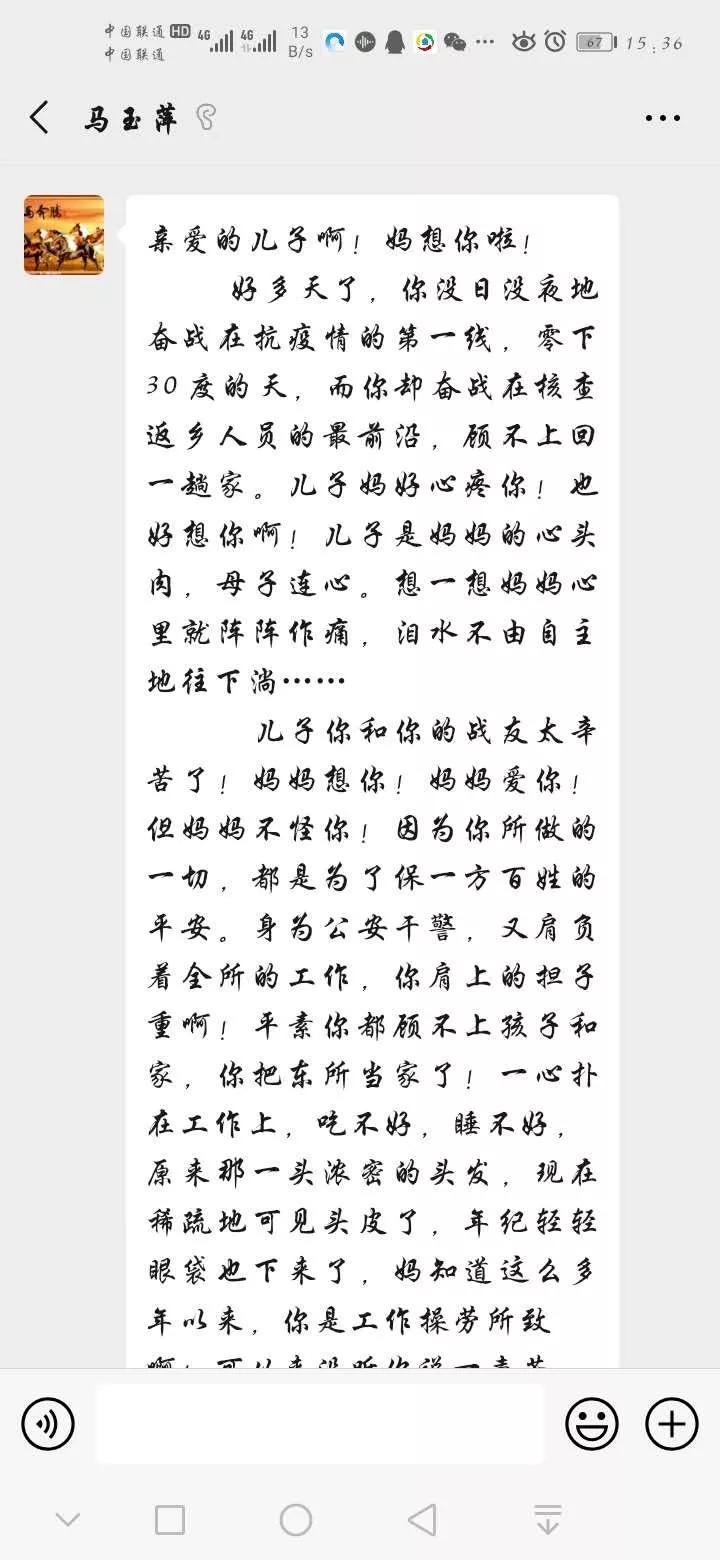 中国联通 HD 4G 4G 13 B/s 67 15:36
中国联通
马玉萍
马奔腾
亲爱的儿子啊！妈想你啦！
好多天了，你没日没夜地
奋战在抗疫情的第一线，零下
30度的天，而你却奋战在核查
返乡人员的最前沿，顾不上回
一趟家。儿子妈好心疼你！也
好想你啊！儿子是妈妈的心头
肉，母子连心。想一想妈妈心
里就阵阵作痛，泪水不由自主
地往下淌……
儿子你和你的战友太辛
苦了！妈妈想你！妈妈爱你！
但妈妈不怪你！因为你所做的
一切，都是为了保一方百姓的
平安。身为公安干警，又肩负
着全所的工作，你肩上的担子
重啊！平素你都顾不上孩子和
家，你把东所当家了！一心扑
在工作上，吃不好，睡不好，
原来那一头浓密的头发，现在
稀疏地可见头皮了，年纪轻轻
眼袋也下来了，妈知道这么多
年以来，你是工作操劳所致
啊！可从来没听你说一声苦